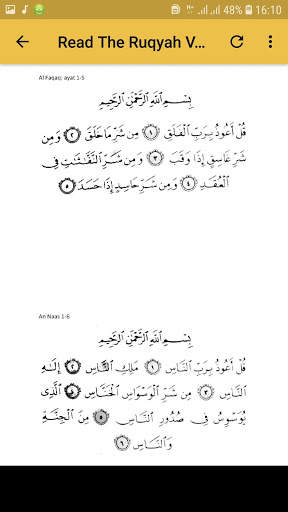 48% 16:10
Read The Ruqyah V...
Al Faqaq; ayat 1-5
بِسْمِ ٱللَّهِ ٱلرَّحْمَٰنِ ٱلرَّحِيمِ
قُلْ أَعُوذُ بِرَبِّ ٱلْفَلَقِ ١ مِن شَرِّ مَا خَلَقَ ٢ وَمِن
شَرِّ غَاسِقٍ إِذَا وَقَبَ ٣ وَمِن شَرِّ ٱلنَّفَّٰثَٰتِ فِى
ٱلْعُقَدِ ٤ وَمِن شَرِّ حَاسِدٍ إِذَا حَسَدَ ٥
An Naas 1-6
بِسْمِ ٱللَّهِ ٱلرَّحْمَٰنِ ٱلرَّحِيمِ
قُلْ أَعُوذُ بِرَبِّ ٱلنَّاسِ ١ مَلِكِ ٱلنَّاسِ ٢ إِلَٰهِ
ٱلنَّاسِ ٣ مِن شَرِّ ٱلْوَسْوَاسِ ٱلْخَنَّاسِ ٤ ٱلَّذِى
يُوَسْوِسُ فِى صُدُورِ ٱلنَّاسِ ٥ مِنَ ٱلْجِنَّةِ
وَٱلنَّاسِ ٦